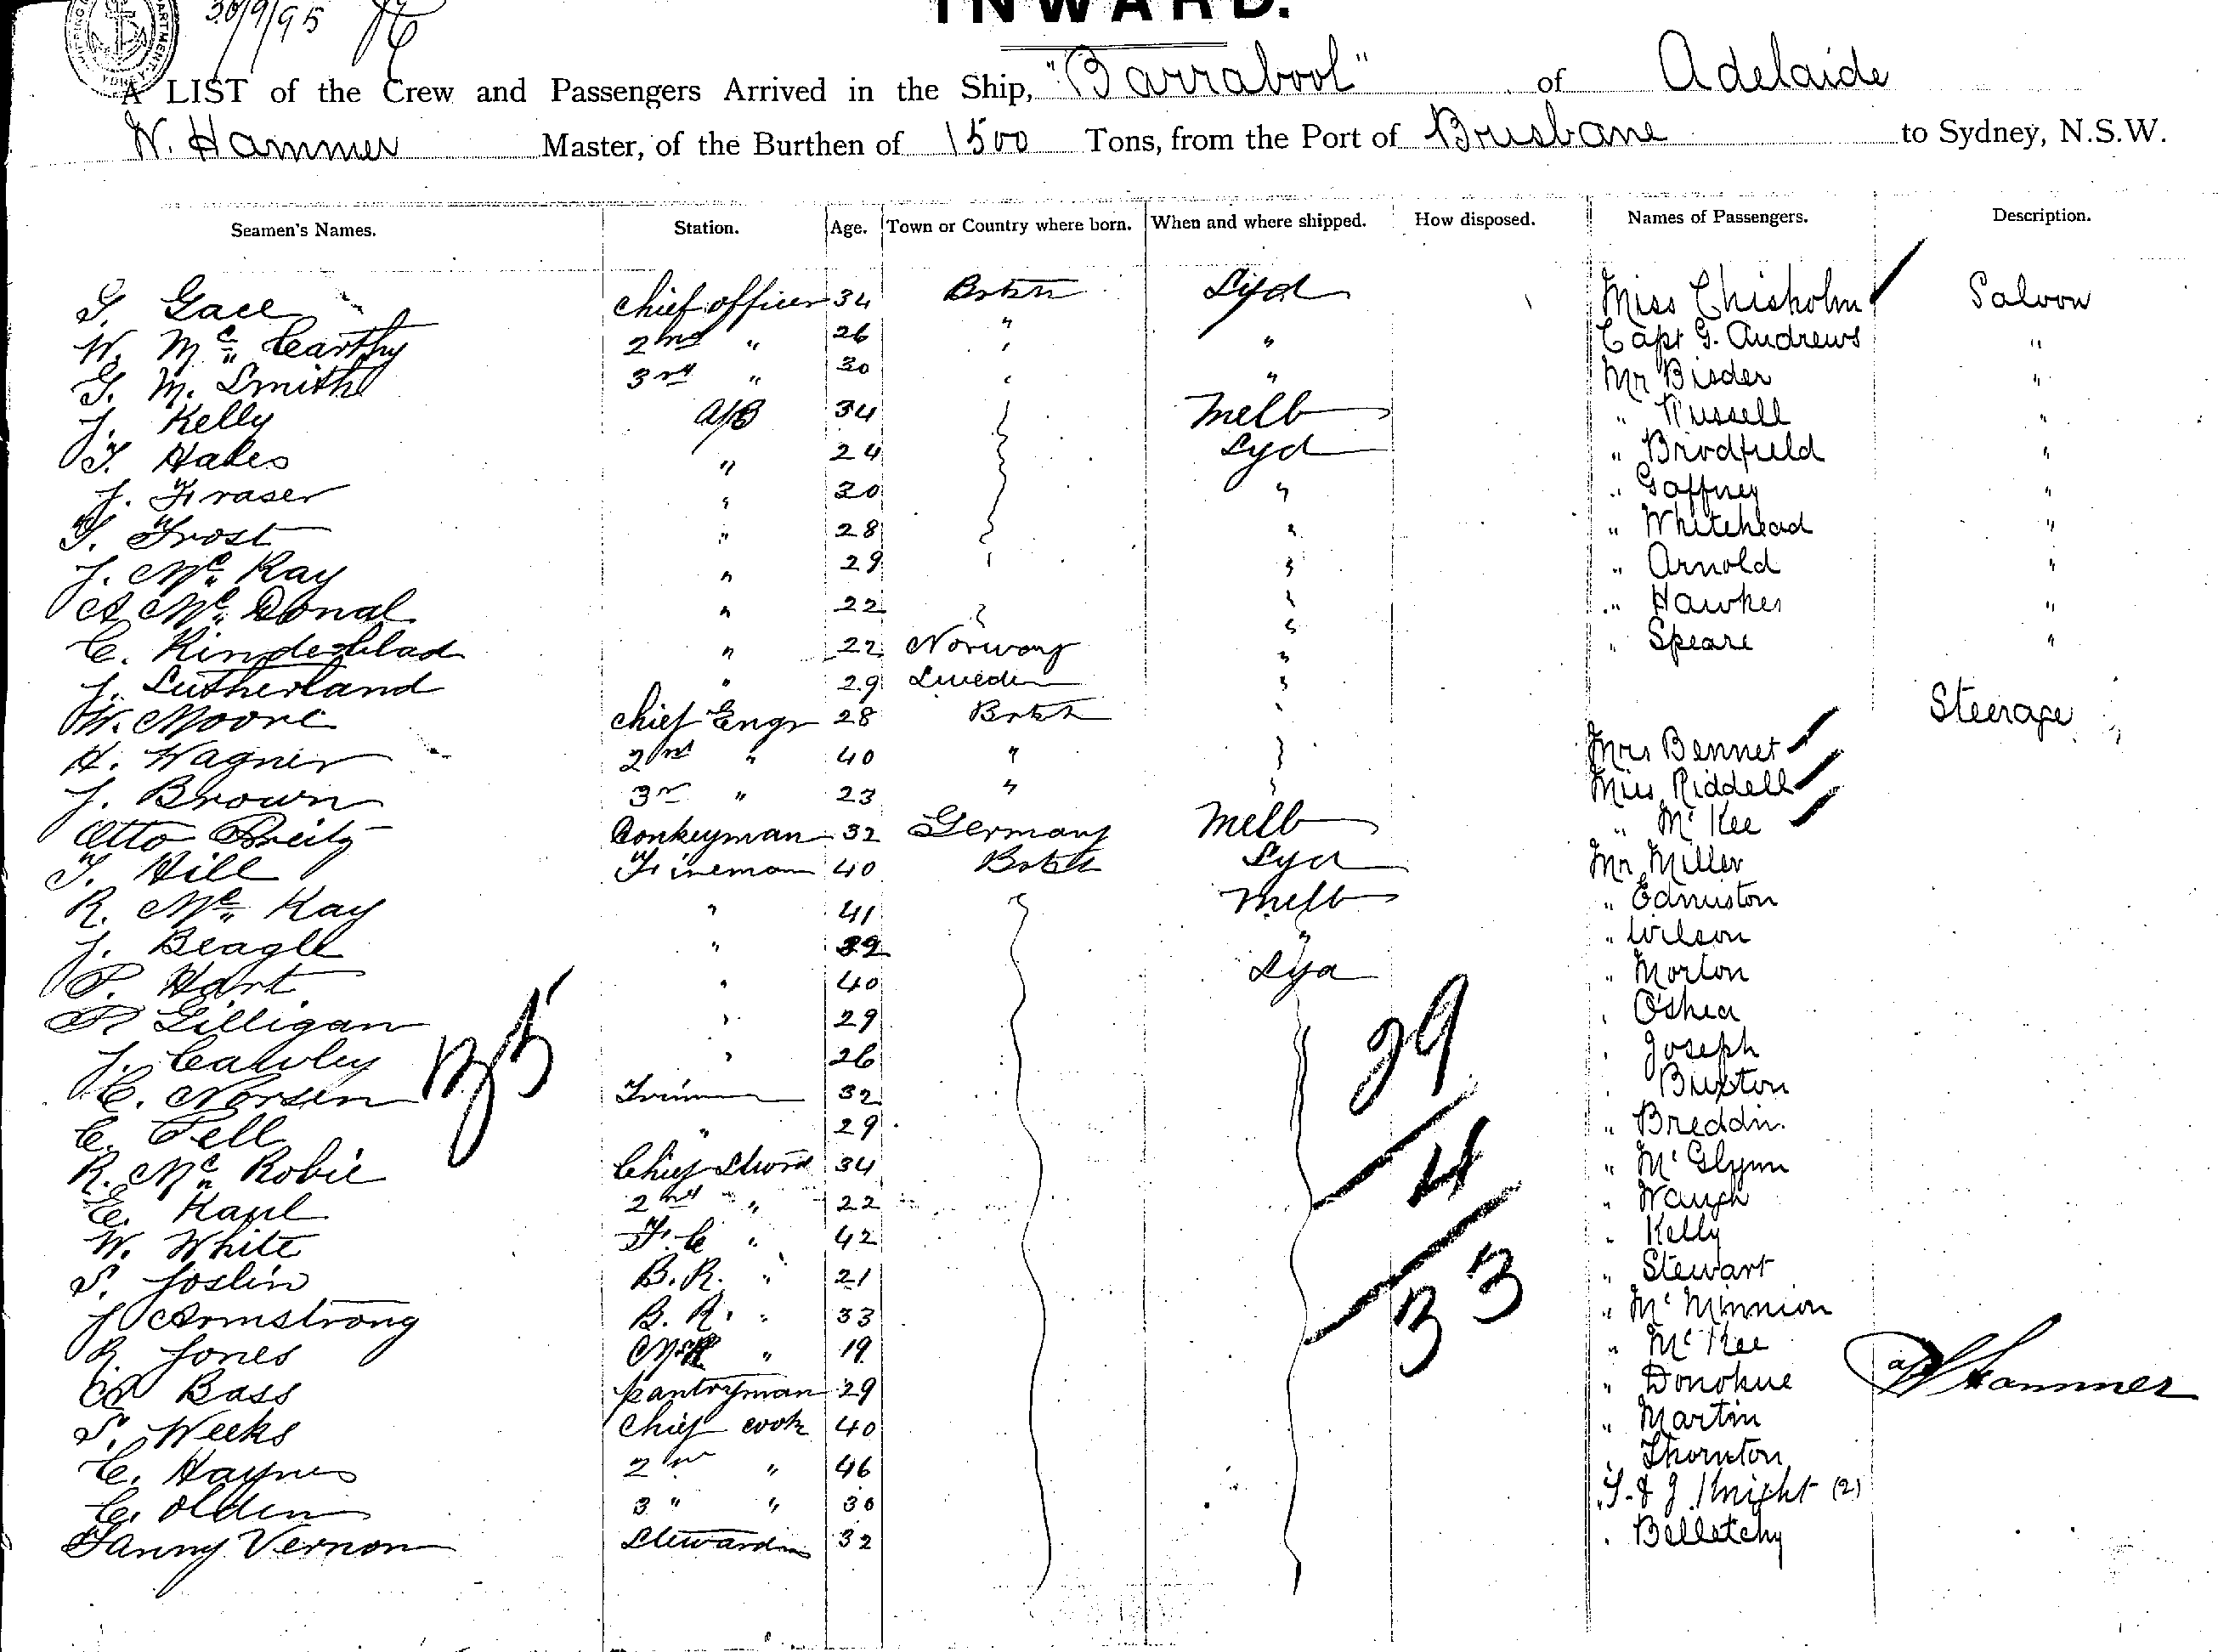 30/9/95
INWARD.
A LIST of the Crew and Passengers Arrived in the Ship, "Barrabool" of Adelaide
W. Hammer Master, of the Burthen of 1500 Tons, from the Port of Brisbane to Sydney, N.S.W.
Seamen's Names. Station. Age. Town or Country where born. When and where shipped. How disposed. Names of Passengers. Description.
Chief officer 34 Brtsh Syd Miss Chisholm Saloon
W. Mc Carthy 2nd " 26 " " Capt G. Andrews "
G. M. Smith 3rd " 30 " " Mr Bisder "
J. Kelly A/B 34 Melb " Russell "
T. Hales " 24 Syd " Brodfield "
J. Fraser " 30 " " Gaffney "
T. Frost " 28 " " Whitehead "
J. Mc Kay " 29 " " Arnold "
A Mc Donal " 22 " " Hawkes "
C. " 22 Norway " " Speare "
J. Sutherland " 29 Sweden "
W. Moore Chief Engr 28 Brtsh " Steerage
H. Wagner 2nd " 40 " Mrs Bennet
J. Brown 3rd " 23 " Miss Riddell
Otto Donkeyman 32 Germany Melb " Mc Kee
T. Hill Fireman 40 Brtsh Syd Mr Miller
R. Mc Kay " 41 Melb " Edmiston
J. Beagle " 39 " " Wilson
P. Hart " 40 Syd " Morton
P. Gilligan " 29 " O'Shea
J. Cawley " 26 " Joseph
C. Norsen Trimmer 32 " Buxton
C. Fell " 29 " Breddin.
R. Mc Robie Chief Stwrd 34 " Mc Glynn
E. Kaul 2nd " 22 " Waugh
W. White F. C " 42 " Kelly
S. Joslin B.R. " 21 " Stewart
J Armstrong B.R. " 33 " Mc Minnion
R. Jones " 19 " Mc Kee
Bass Pantryman 29 " Donohue
S. Weeks Chief cook 40 " Martin
C. Haynes 2nd " 46 " Thornton
C. Olden 3 " " 30 " T. & J. Knight (2)
Fanny Vernon Stewardess 32 " Belletchy
35
29
4
33
W Hammer